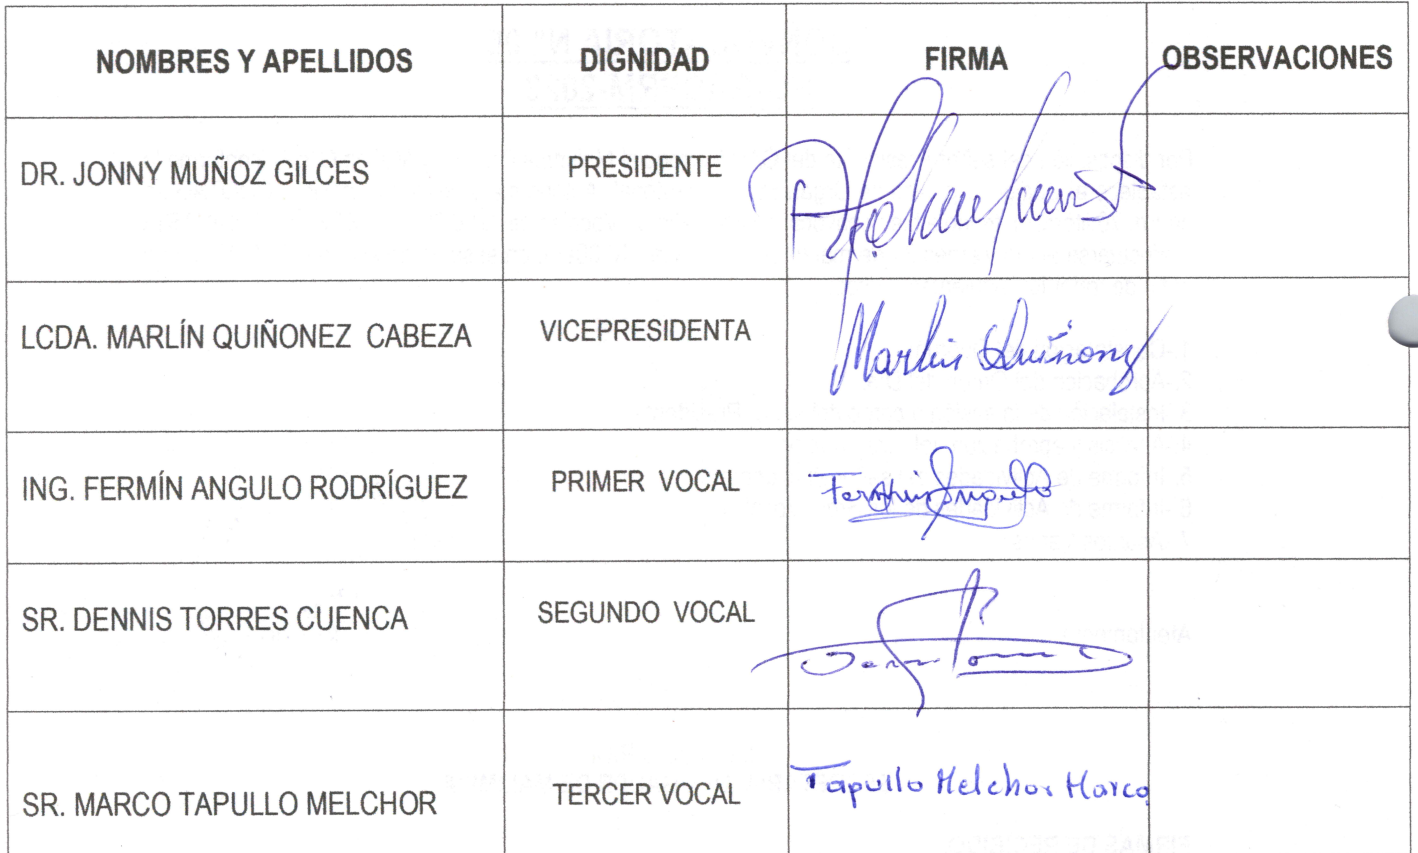 NOMBRES Y APELLIDOS DIGNIDAD FIRMA OBSERVACIONES
DR. JONNY MUÑOZ GILCES PRESIDENTE
LCDA. MARLÍN QUIÑONEZ CABEZA VICEPRESIDENTA Marlin Quiñonez
ING. FERMÍN ANGULO RODRÍGUEZ PRIMER VOCAL Fermin Angulo
SR. DENNIS TORRES CUENCA SEGUNDO VOCAL
SR. MARCO TAPULLO MELCHOR TERCER VOCAL Tapullo Melchor Marco